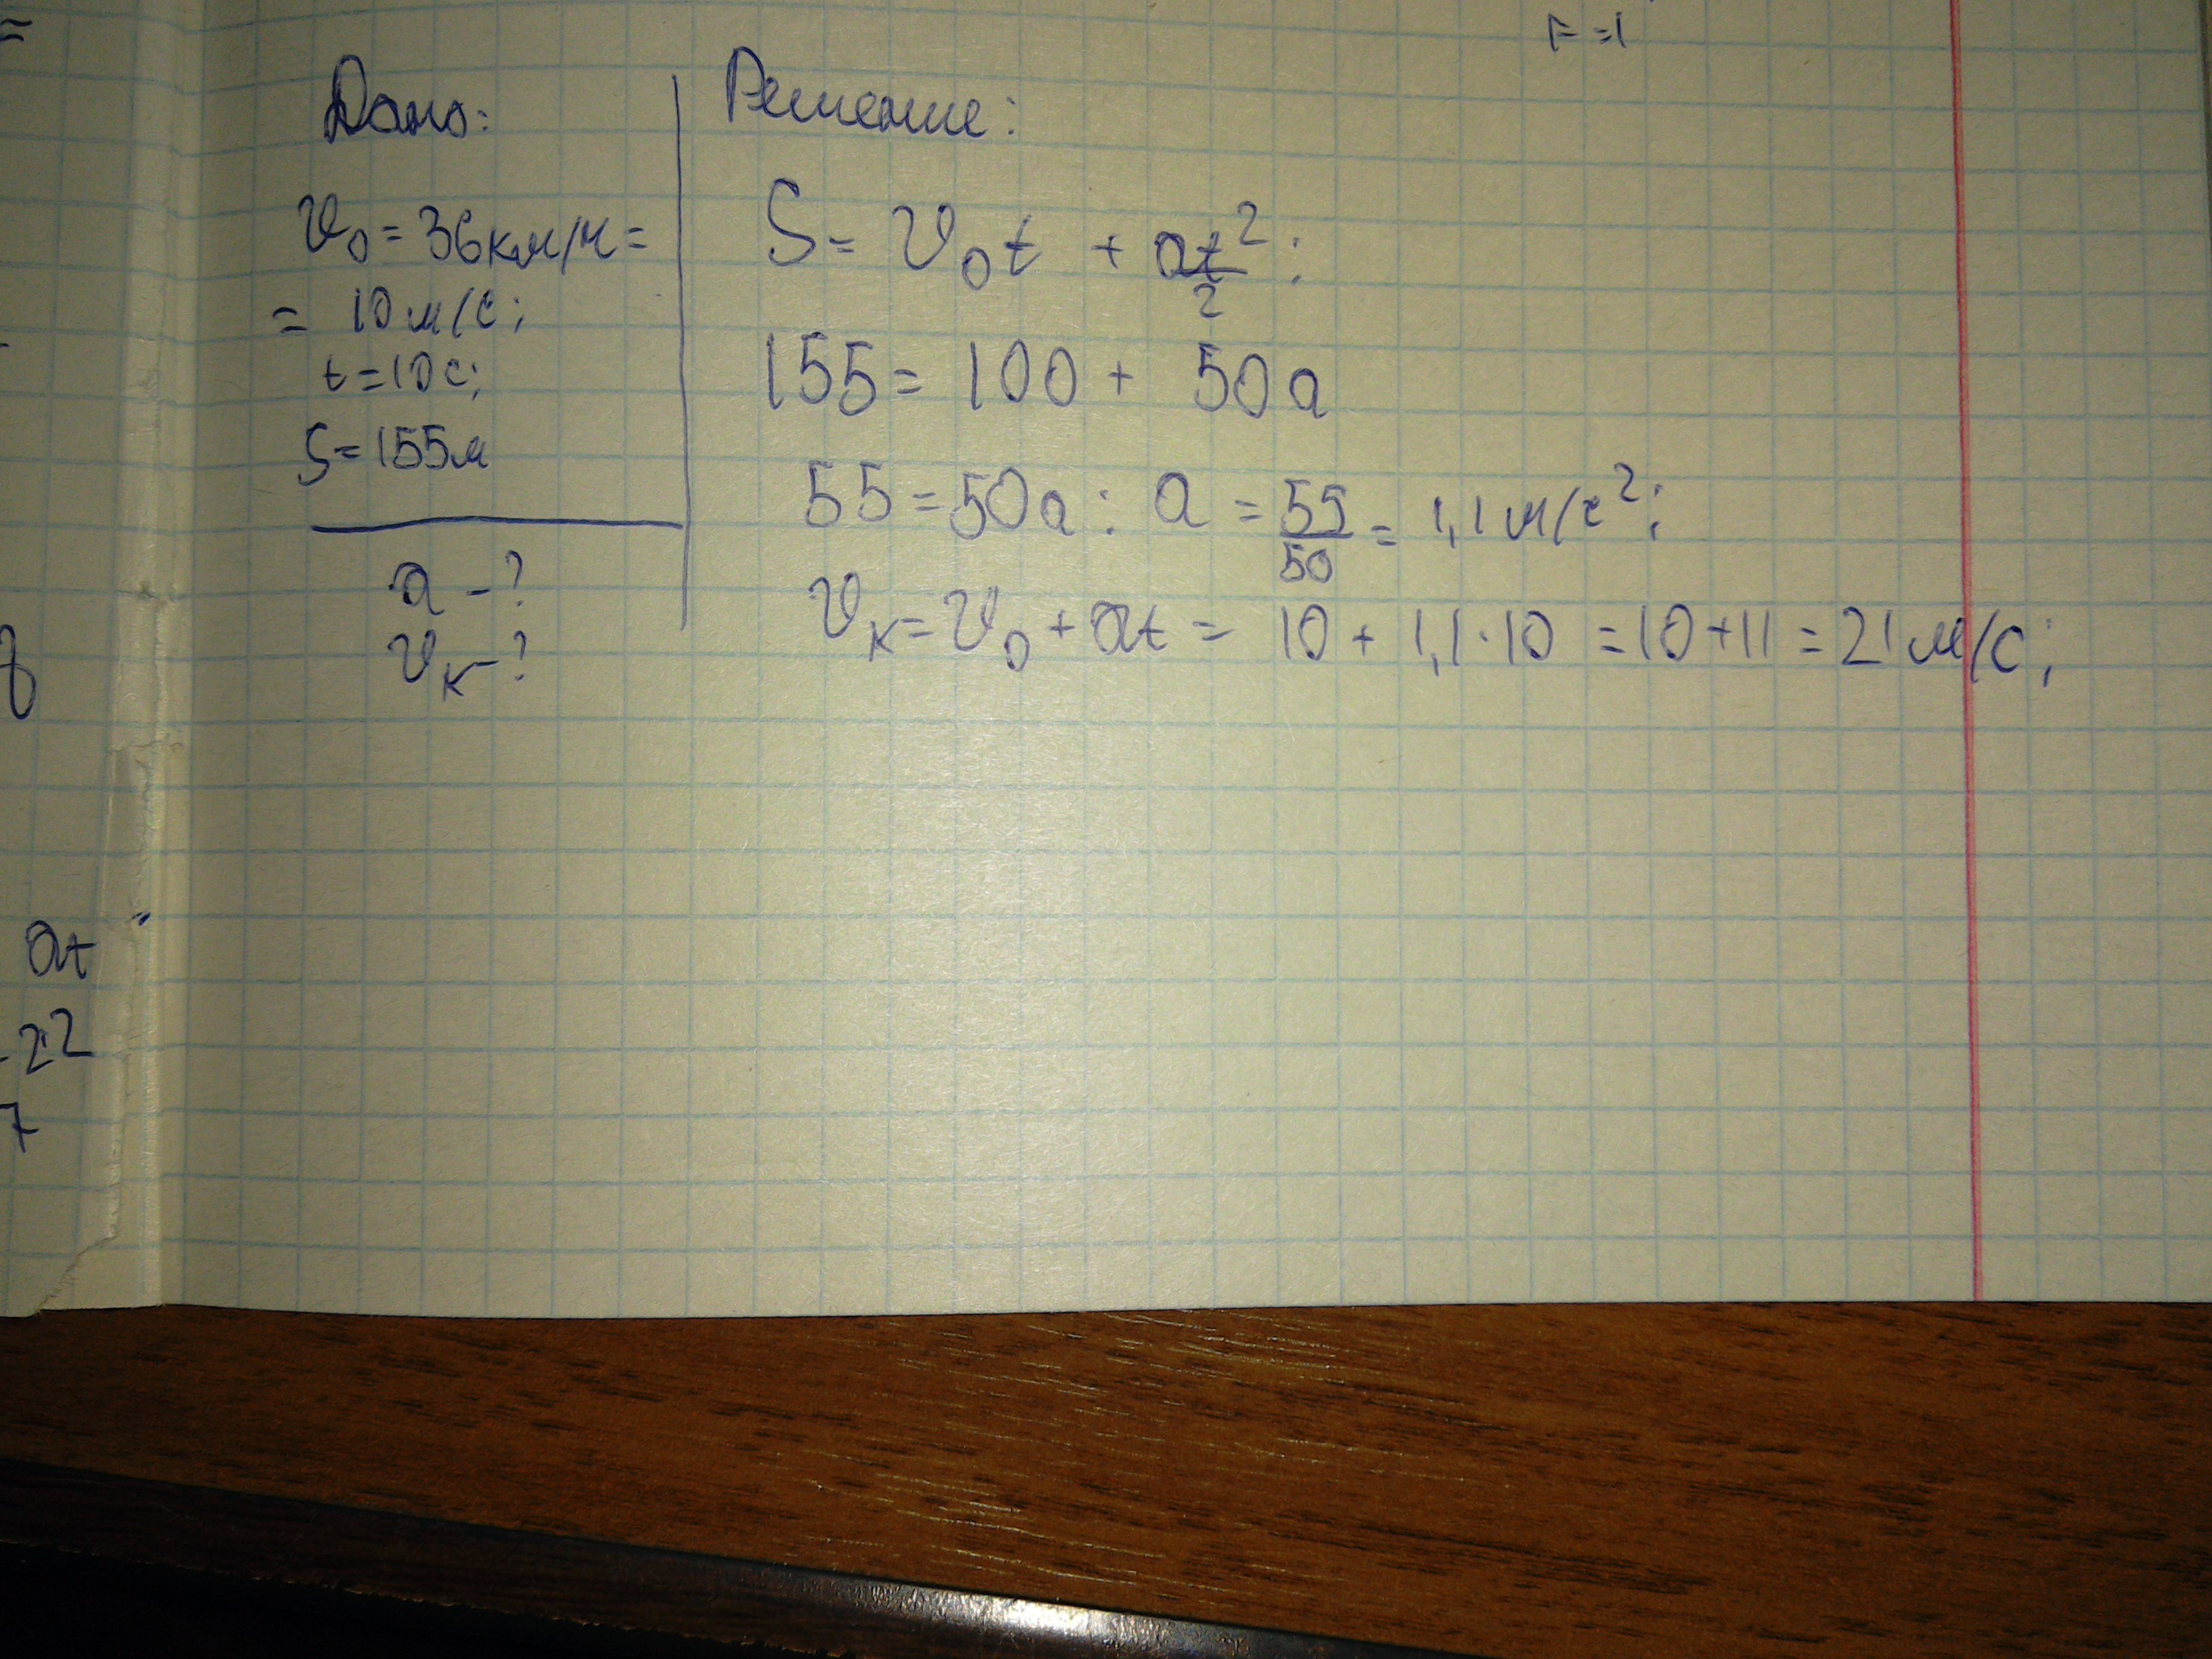 F=1
Дано:
v₀=36км/ч=
= 10м/с;
t=10с;
S=155м
a-?
vк-?
Решение:
S= v₀t + at²/2;
155= 100+ 50a
55=50a: a = 55/50 = 1,1м/с²;
vк=v₀+at= 10+1,1·10=10+11=21м/с;
at
22
7